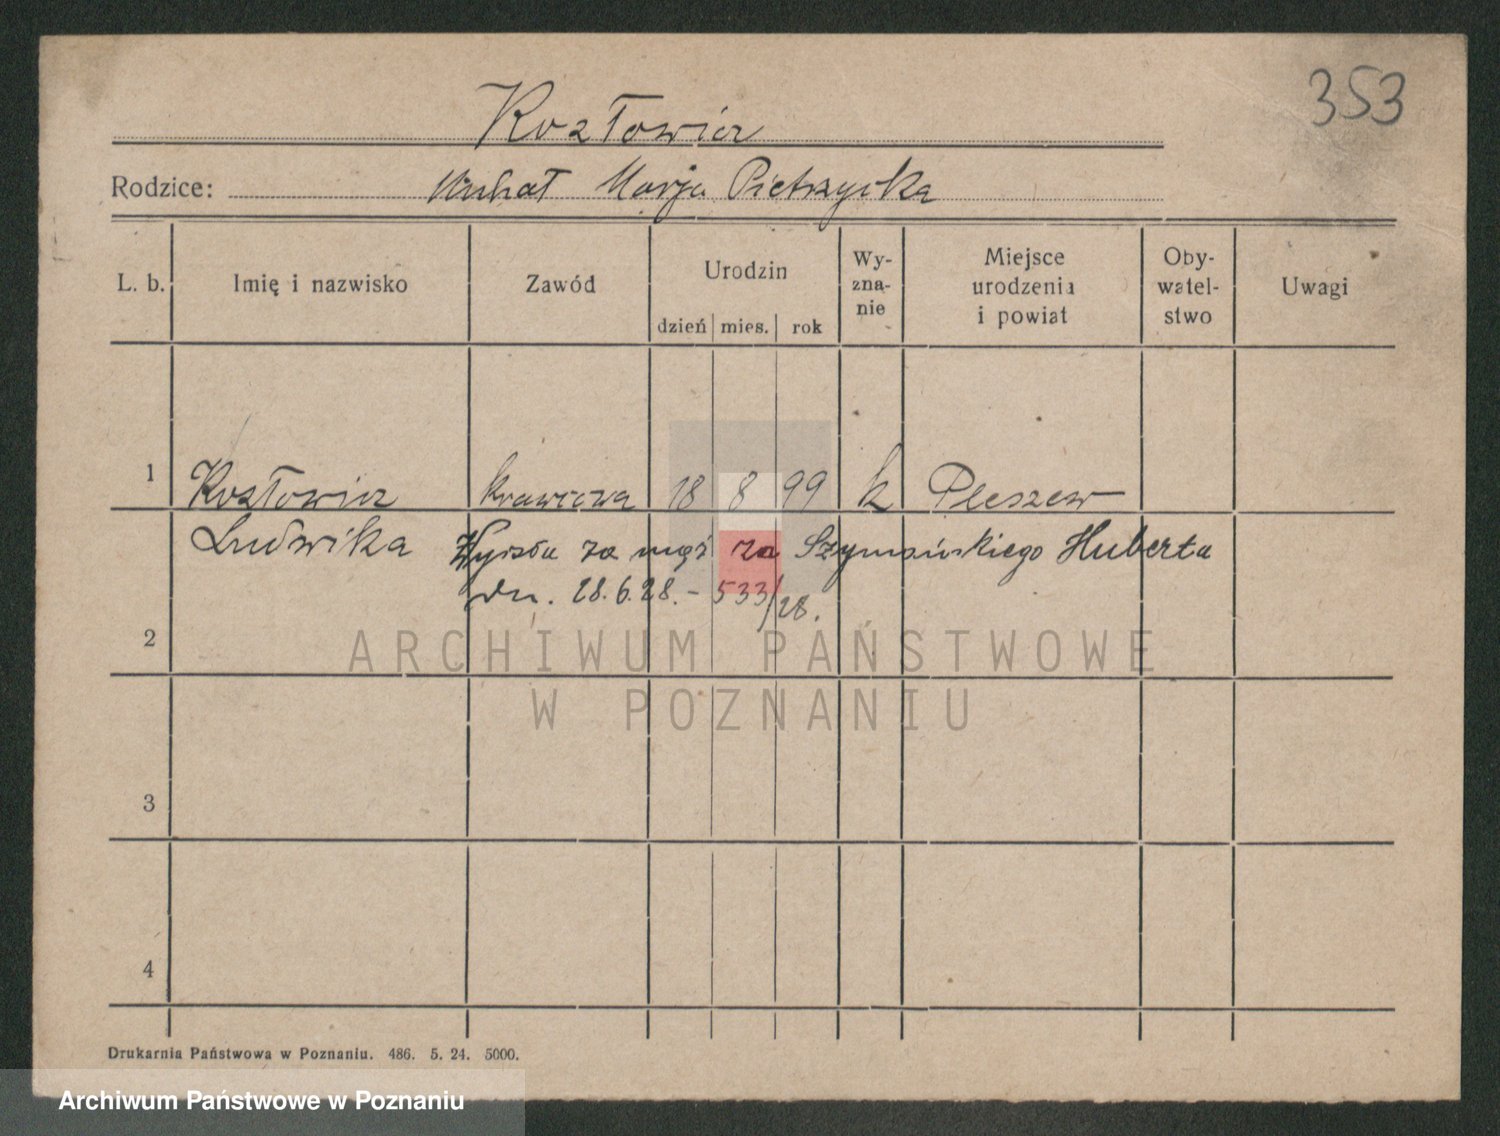 353
Kozłowicz
Rodzice: Michał Marja Pietrzycka
L. b. Imię i nazwisko Zawód Urodzin Wy- zna- nie Miejsce urodzenia i powiat Oby- watel- stwo Uwagi
dzień mies. rok
1 Kozłowicz krawcowa 18 8 99 k Pleszew
Ludwika Wyszła za mąż za Szymańskiego Huberta
dn. 28.6.28. - 533/28.
2
ARCHIWUM PAŃSTWOWE
W POZNANIU
3
4
Drukarnia Państwowa w Poznaniu. 486. 5. 24. 5000.
Archiwum Państwowe w Poznaniu